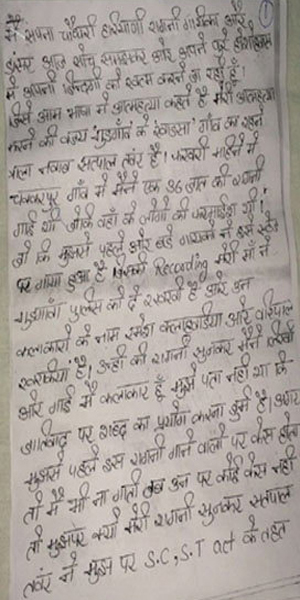 ①
मैं सपना चौधरी हरियाणवी रागनी गायिका और
डांसर आज सोच समझकर और अपने पूरे होशोहवास
में अपनी जिन्दगी को खत्म करने जा रही हूँ।
जिसे आम भाषा में आत्महत्या कहते है मेरी आत्महत्या
करने की वजह गुड़गाँव के खांडसा गाँव का रहने
वाला नवाब सतपाल तंवर है। फरवरी महिने में
चक्करपुर गाँव में मैंने एक 36 जात की रागनी
गाई थी जोकि वहाँ के लोगों की फरमाईश थी।
जो कि मुझसे पहले और बड़े गायको ने इसे
पर गाया हुआ है जिसकी Recording मेरी माँ ने
गुड़गांवा पुलिस को दे रखखी है और उन
कलाकारो के नाम और
है। उन्ही की रागनी सुनकर मैंने
और गाई मैं कलाकार हूँ मुझे पता नही था कि
जातिवाद पर शब्द का प्रयोग करना जुर्म है। अगर
मुझसे पहले इस रागनी गाने वालो पर केस होता
तो मैं भी ना गाती जब उन पर कोई केस नही
तो मुझपर क्यो मेरी रागनी सुनकर सतपाल
तवंर ने मुझ पर S.C, S.T act के तहत